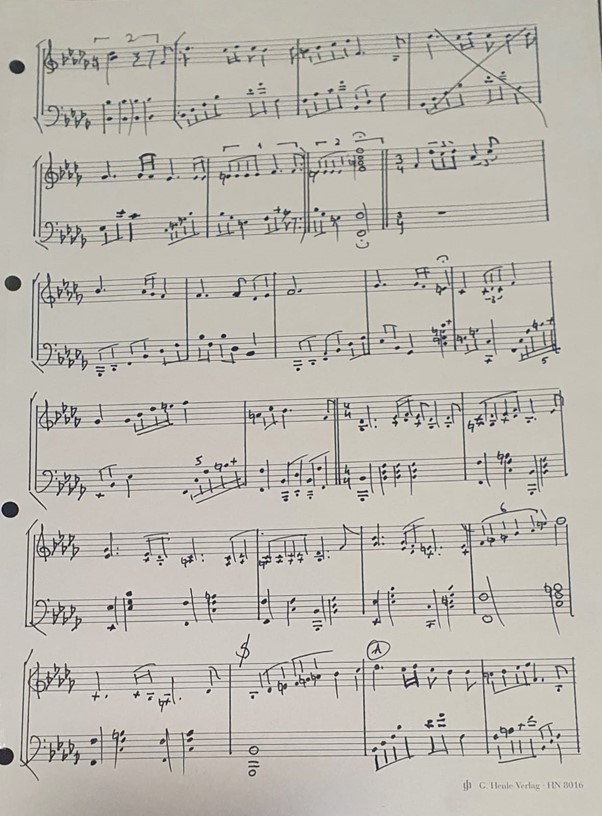 2
1 2 3 4 3
3
5
5 4 4
6
A
G. Henle Verlag · HN 8016